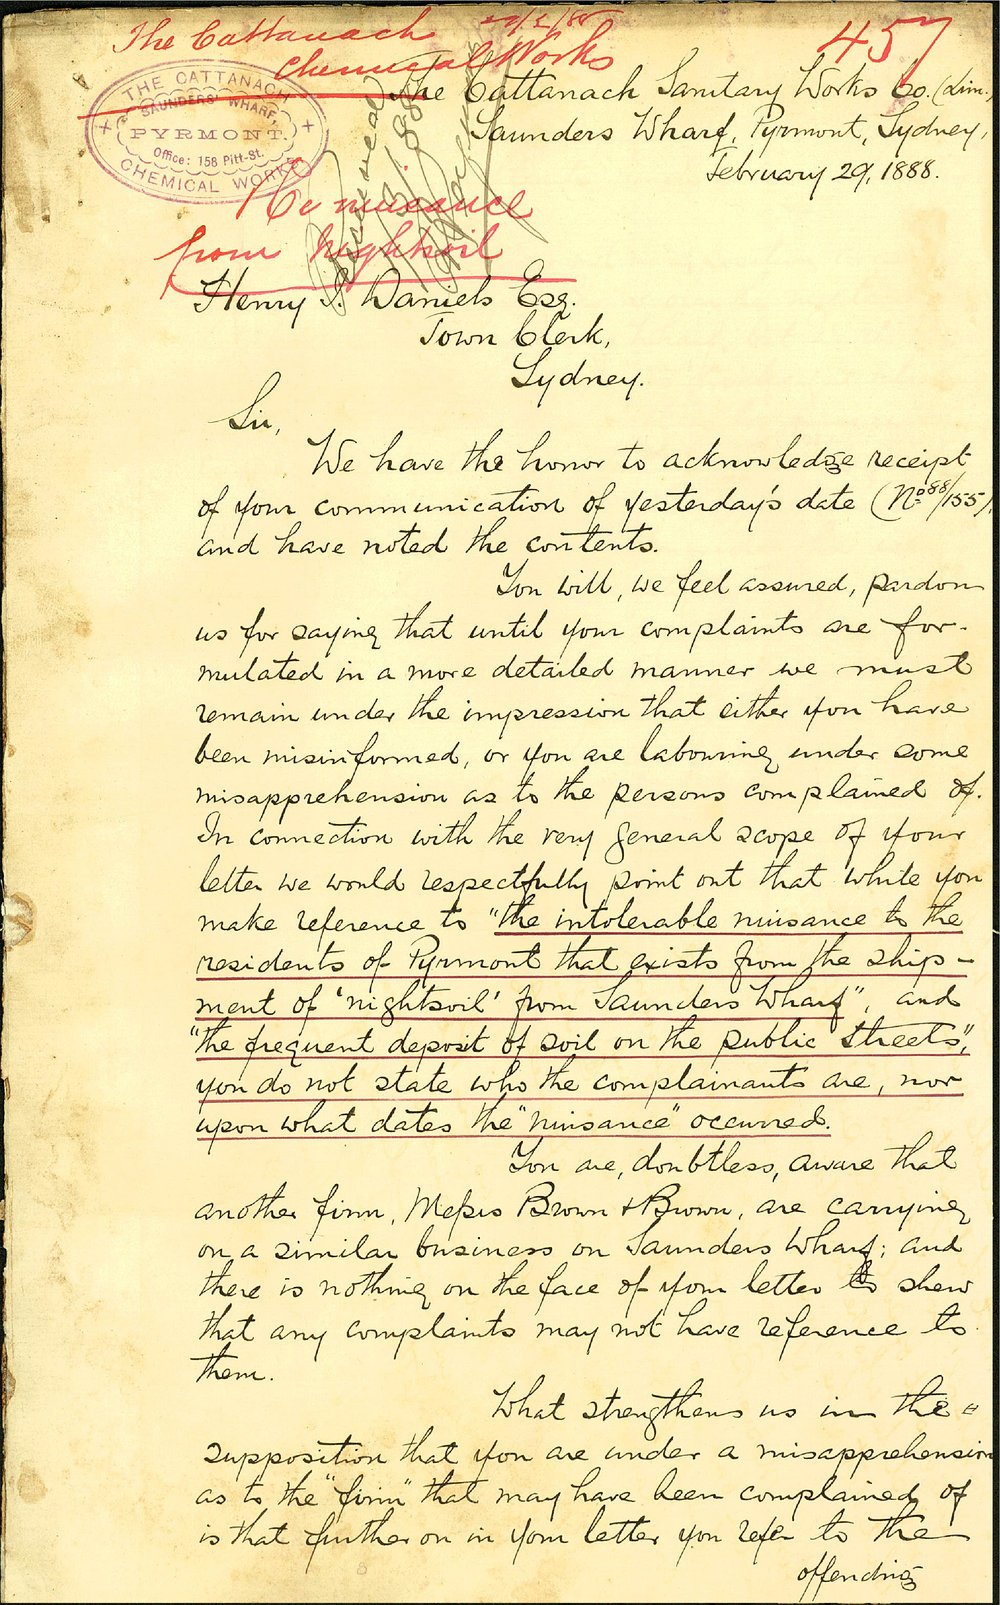 The Cattanach
Chemical Works
29/2/88
457
THE CATTANACH
SAUNDERS' WHARF,
PYRMONT.
Office: 158 Pitt-St.
CHEMICAL WORKS
The Cattanach Sanitary Works Co. (Lim.)
Saunders Wharf, Pyrmont, Sydney,
February 29, 1888.
Re nuisance
from nightsoil
Henry S. Daniels Esq.
Town Clerk,
Sydney.
Sir,
We have the honor to acknowledge receipt
of your communication of yesterday's date (No 88/155),
and have noted the contents.
You will, we feel assured, pardon
us for saying that until your complaints are for-
mulated in a more detailed manner we must
remain under the impression that either you have
been misinformed, or you are labouring under some
misapprehension as to the persons complained of.
In connection with the very general scope of your
letter we would respectfully point out that while you
make reference to "the intolerable nuisance to the
residents of Pyrmont that exists from the ship-
ment of 'nightsoil' from Saunders Wharf", and
"the frequent deposit of soil on the public streets",
you do not state who the complainants are, nor
upon what dates the "nuisance" occurred.
You are, doubtless, aware that
another firm, Messrs Brown & Brown, are carrying
on a similar business on Saunders Wharf; and
there is nothing on the face of your letter to shew
that any complaints may not have reference to
them.
What strengthens us in the
supposition that you are under a misapprehension
as to the "firm" that may have been complained of
is that further on in your letter you refer to the
offending